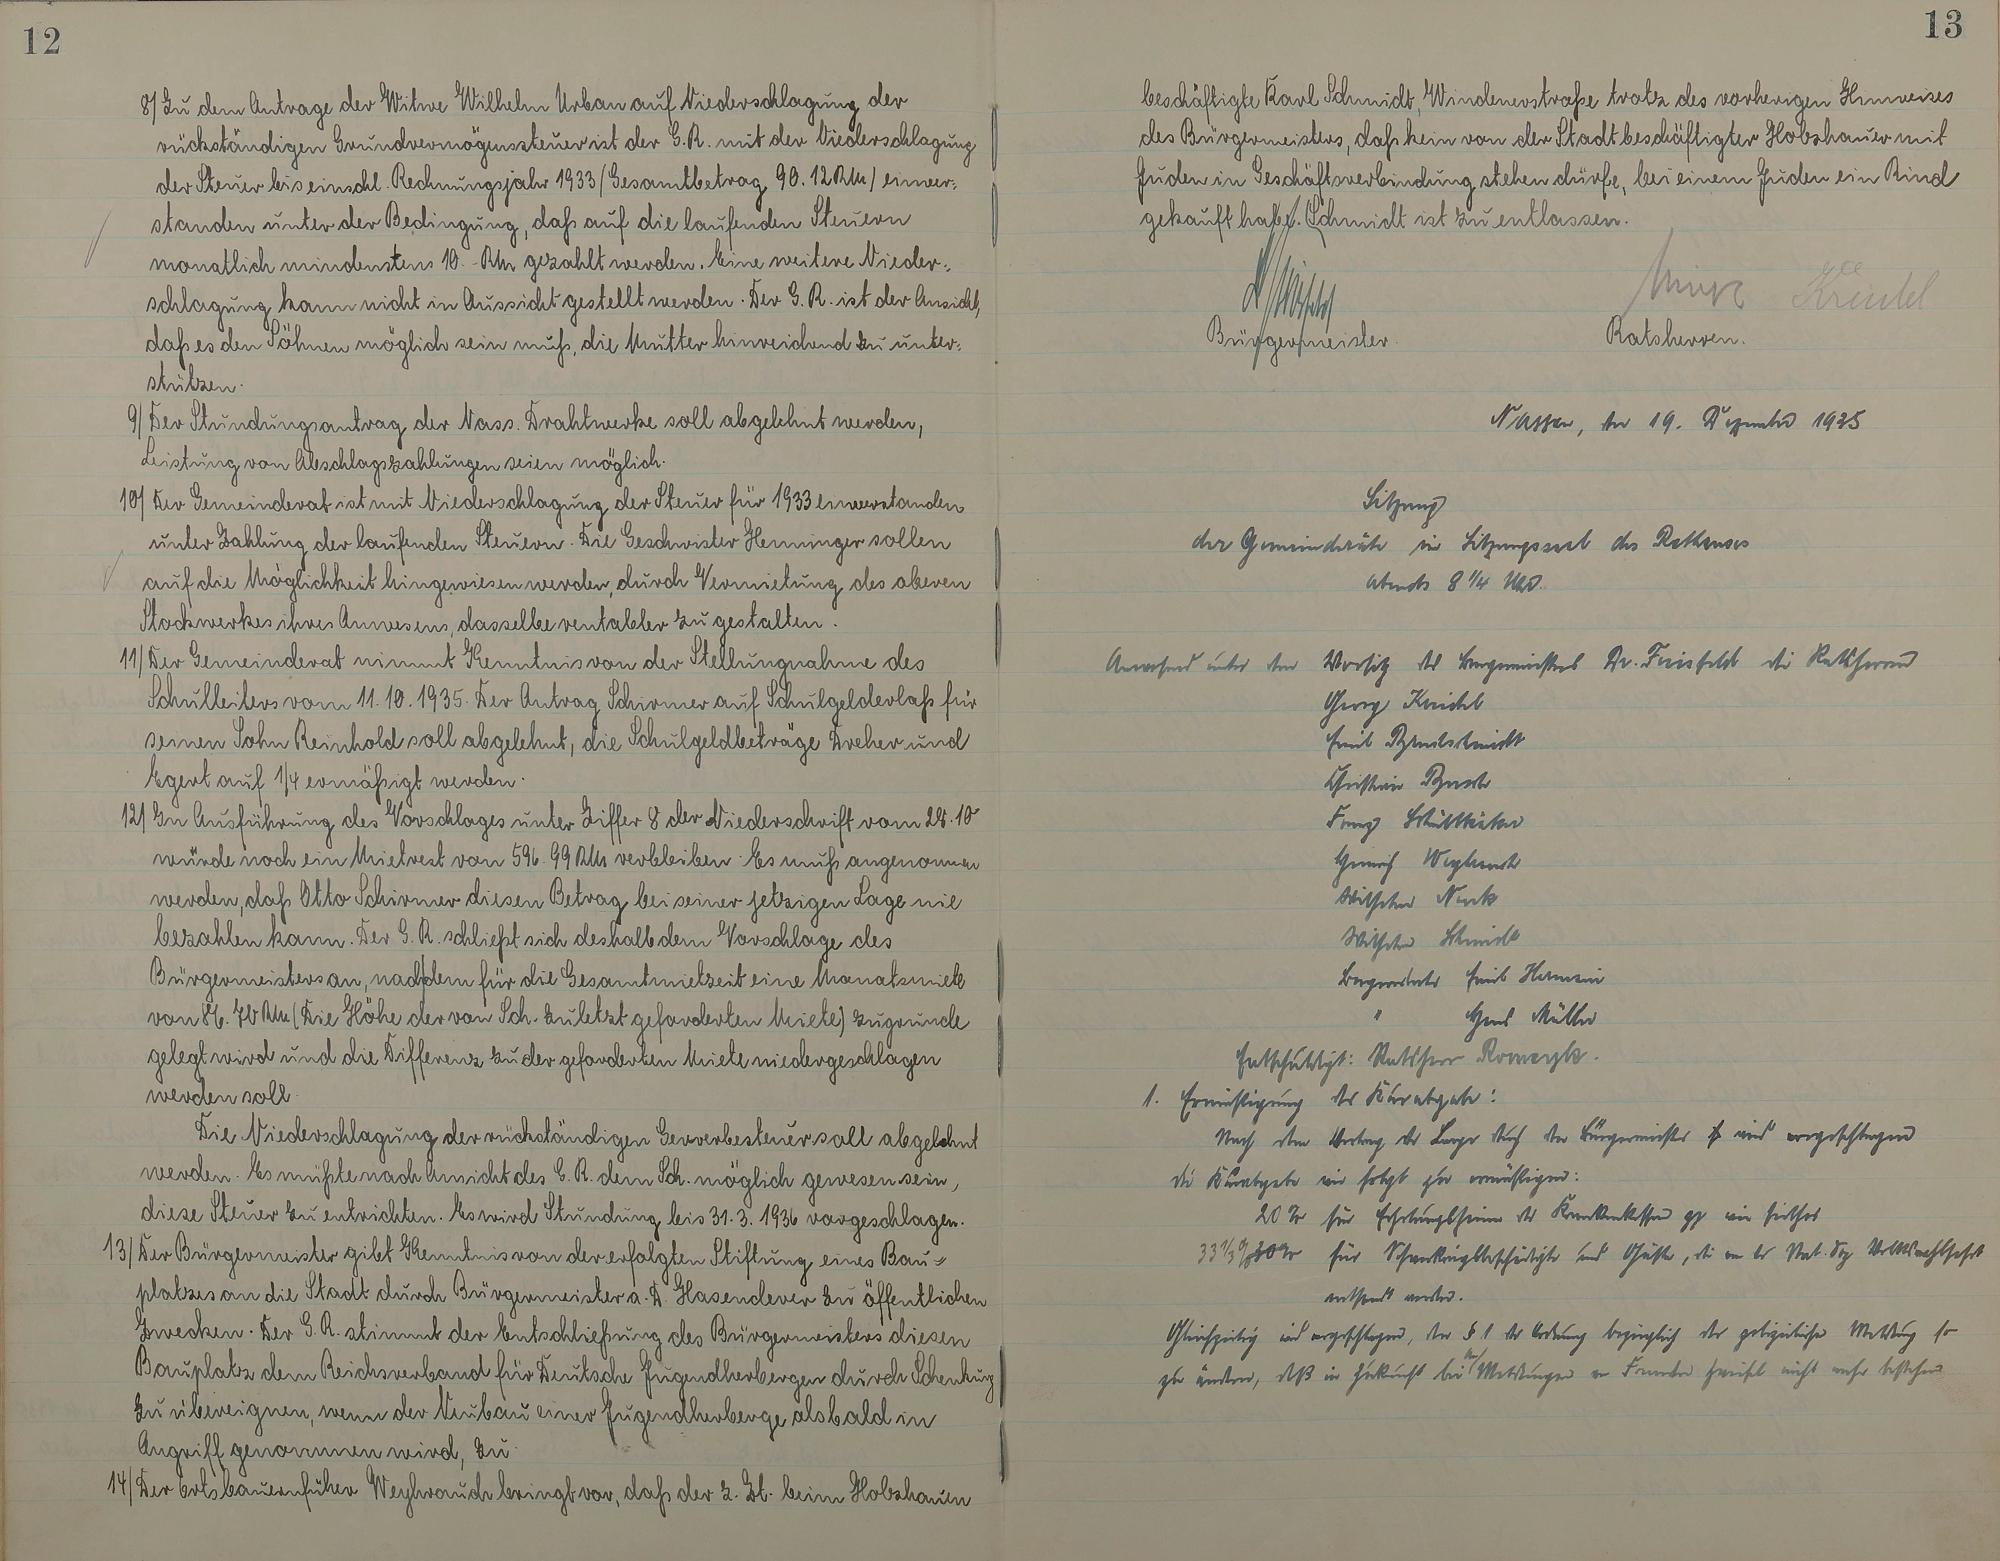 12
8/ Zu dem Antrage der Witwe Wilhelm Urban auf Niederschlagung der
rückständigen Grundvermögenssteuer ist der G.R. mit der Niederschlagung
der Steuer bis einschl. Rechnungsjahr 1933 (Gesamtbetrag 90.12 RM) einver-
standen unter der Bedingung, daß auf die laufenden Steuern
monatlich mindenstens 10.- RM gezahlt werden. Eine weitere Nieder-
schlagung kann nicht in Aussicht gestellt werden. Der G.R. ist der Ansicht,
daß es den Söhnen möglich sein muß, die Mutter hinreichend zu unter-
stützen.
9/ Der Stundungsantrag der Nass. Drahtwerke soll abgelehnt werden,
Leistung von Abschlagszahlungen seien möglich.
10/ Der Gemeinderat ist mit Niederschlagung der Steuer für 1933 einverstanden
unter Zahlung der laufenden Steuern. Die Geschwister Henninger sollen
auf die Möglichkeit hingewiesen werden, durch Vermietung des oberen
Stockwerkes ihres Anwesens, dasselbe rentabler zu gestalten.
11/ Der Gemeinderat nimmt Kenntnis von der Stellungnahme des
Schulleiters vom 11.10.1935. Der Antrag Schirmer auf Schulgelderlaß für
seinen Sohn Reinhold soll abgelehnt, die Schulgeldbeträge Dreher und
Egert auf 1/4 ermäßigt werden.
12/ In Ausführung des Vorschlages unter Ziffer 8 der Niederschrift vom 28.10
würde noch ein Mietrest von 596.99 RM verbleiben. Es muß angenommen
werden, daß Otto Schirmer diesen Betrag bei seiner jetzigen Lage nie
bezahlen kann. Der G.R. schließt sich deshalb dem Vorschlage des
Bürgermeisters an, nachdem für die Gesamtmietzeit eine Monatsmiete
von 86.70 RM (Die Höhe der von Sch. zuletzt geforderten Miete) zugrunde
gelegt wird und die Differenz zu der geforderten Miete niedergeschlagen
werden soll.
Die Niederschlagung der rückständigen Gewerbesteuer soll abgelehnt
werden. Es müßte nach Ansicht des G.R. dem Sch. möglich gewesen sein,
diese Steuer zu entrichten. Es wird Stundung bis 31.3.1936 vorgeschlagen.
13/ Der Bürgermeister gibt Kenntnis von der erfolgten Stiftung eines Bau-
platzes an die Stadt durch Bürgermeister a.D. Hasenclever zu öffentlichen
Zwecken. Der G.R. stimmt der Entschließung des Bürgermeisters diesen
Bauplatz dem Reichsverband für Deutsche Jugendherbergen durch Schenkung
zu übereignen, wenn der Neubau einer Jugendherberge alsbald in
Angriff genommen wird, zu.
14/ Der Ortsbauernführer Weyhrauch bringt vor, daß der z. Zt. beim Holzhauen
13
beschäftigte Karl Schmidt, Windenerstraße trotz des vorherigen Hinweises
des Bürgermeisters, daß kein von der Stadt beschäftigter Holzhauer mit
Juden in Geschäftsverbindung stehen dürfe, bei einem Juden ein Rind
gekauft habe. (Schmidt ist zu entlassen.
Kreidel
Bürgermeister. Ratsherren.
Nassau, den 19. Dezember 1935
Sitzung
der Gemeinderäte im Sitzungssaal des Rathauses
abends 8 1/4 Uhr.
Anwesend unter dem Vorsitz des Bürgermeisters Dr. die Ratsherren
Georg Kreidel
Emil
Christian
Franz
Heinrich Weyhrauch
Wilhelm
Wilhelm Schmidt
Emil Hermani
" Hans Müller
Entschuldigt: Ratsherr
1. Ermäßigung der Kurabgabe:
Nach dem Vortrag der Lage durch den Bürgermeister wird vorgeschlagen
die Kurabgabe wie folgt zu ermäßigen:
20 % für Erholungsheime der Krankenkassen wie seither
33 1/3 % für Schwerkriegsbeschädigte und Gäste, die von der Nat. Soz. Volkswohlfahrt
entsandt werden.
Gleichzeitig wird vorgeschlagen, den § 1 der Ordnung bezüglich der polizeilichen Meldung so
zu ändern, daß in Zukunft bei den Meldungen von Fremden Zweifel nicht mehr bestehen